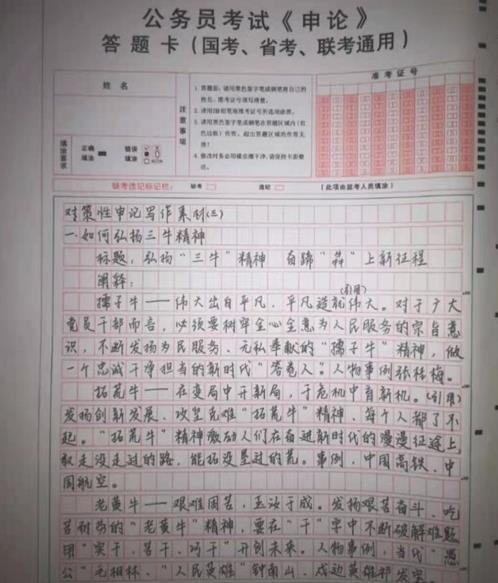 公务员考试《申论》
答题卡（国考、省考、联考通用）
姓名
准考证号
注意事项
填涂要求
正确填涂
错误填涂
缺考违记标记栏:
缺考
违纪
（此项由监考人员填涂）
对策性申论写作素材(三)
一.如何弘扬三牛精神
标题：弘扬“三牛”精神 奋蹄“犇”上新征程
阐释：
(引用)
孺子牛——伟大出自平凡，平凡造就伟大。对于广大
党员干部而言，必须要树牢全心全意为人民服务的宗旨意
识，不断发扬为民服务、无私奉献的“孺子牛”精神，做
一个忠诚干净担当的新时代“答卷人”。人物事例张桂梅。
拓荒牛——在变局中开新局，于危机中育新机。(引用)
发扬创新发展、攻坚克难“拓荒牛”精神，每个人都了不
起。“拓荒牛”精神激励人们在奋进新时代的漫漫征途上，
敢走没走过的路，能拓没垦过的荒。事例，中国高铁、中
国航空。
老黄牛——艰难困苦，玉汝于成。发扬艰苦奋斗、吃
苦耐劳的“老黄牛”精神，要在“干”字中不断破解难题
用“实干、苦干、巧干”开创未来。人物事例，当代“愚
公”毛相林、“人民英雄”钟南山、戍边英雄祁发宝